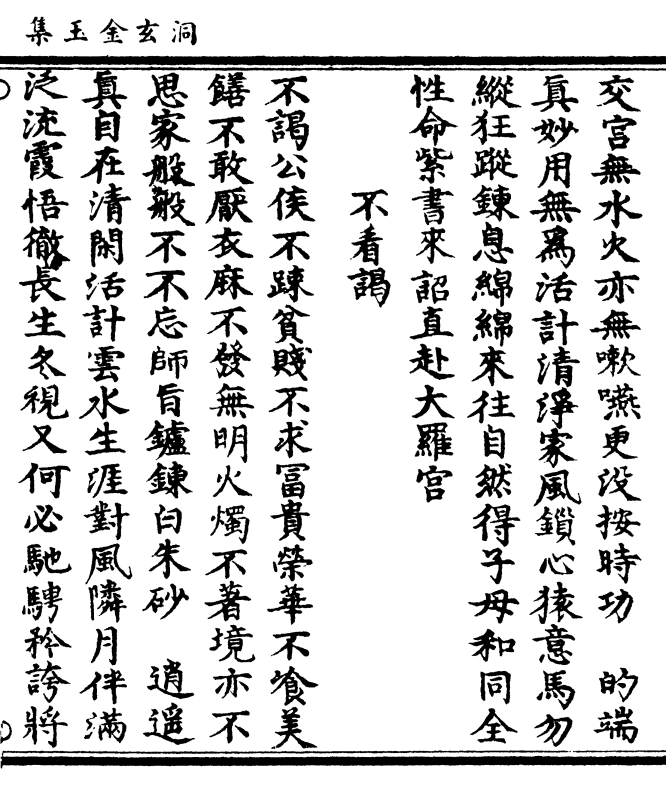 洞玄金玉集
交宮無水火亦無嗽嚥更没按時功　的端
眞妙用無爲活計清淨家風鎖心猿意馬勿
縱狂蹤鍊息綿綿來往自然得子母和同全
性命紫書來詔直赴大羅宮
不看謁
不謁公侯不踈貧賤不求冨貴榮華不飡美
饍不敢厭衣麻不發無明火燭不著境亦不
思家般般不不忘師旨鑪鍊白朱砂　逍遥
眞自在清閑活計雲水生涯對風隣月伴滿
泛流霞悟徹長生久視又何必馳騁矜誇將